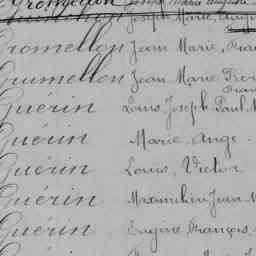 Joseph Marie
Gromellon Jean Marie, Fran
Grumellon Jean Marie Pier
Fran
Guérin Louis Joseph Paul M
Guérin Marie Ange
Guérin Louis, Victor
Guérin Maximilien Jean M
Guérin Eugène François,